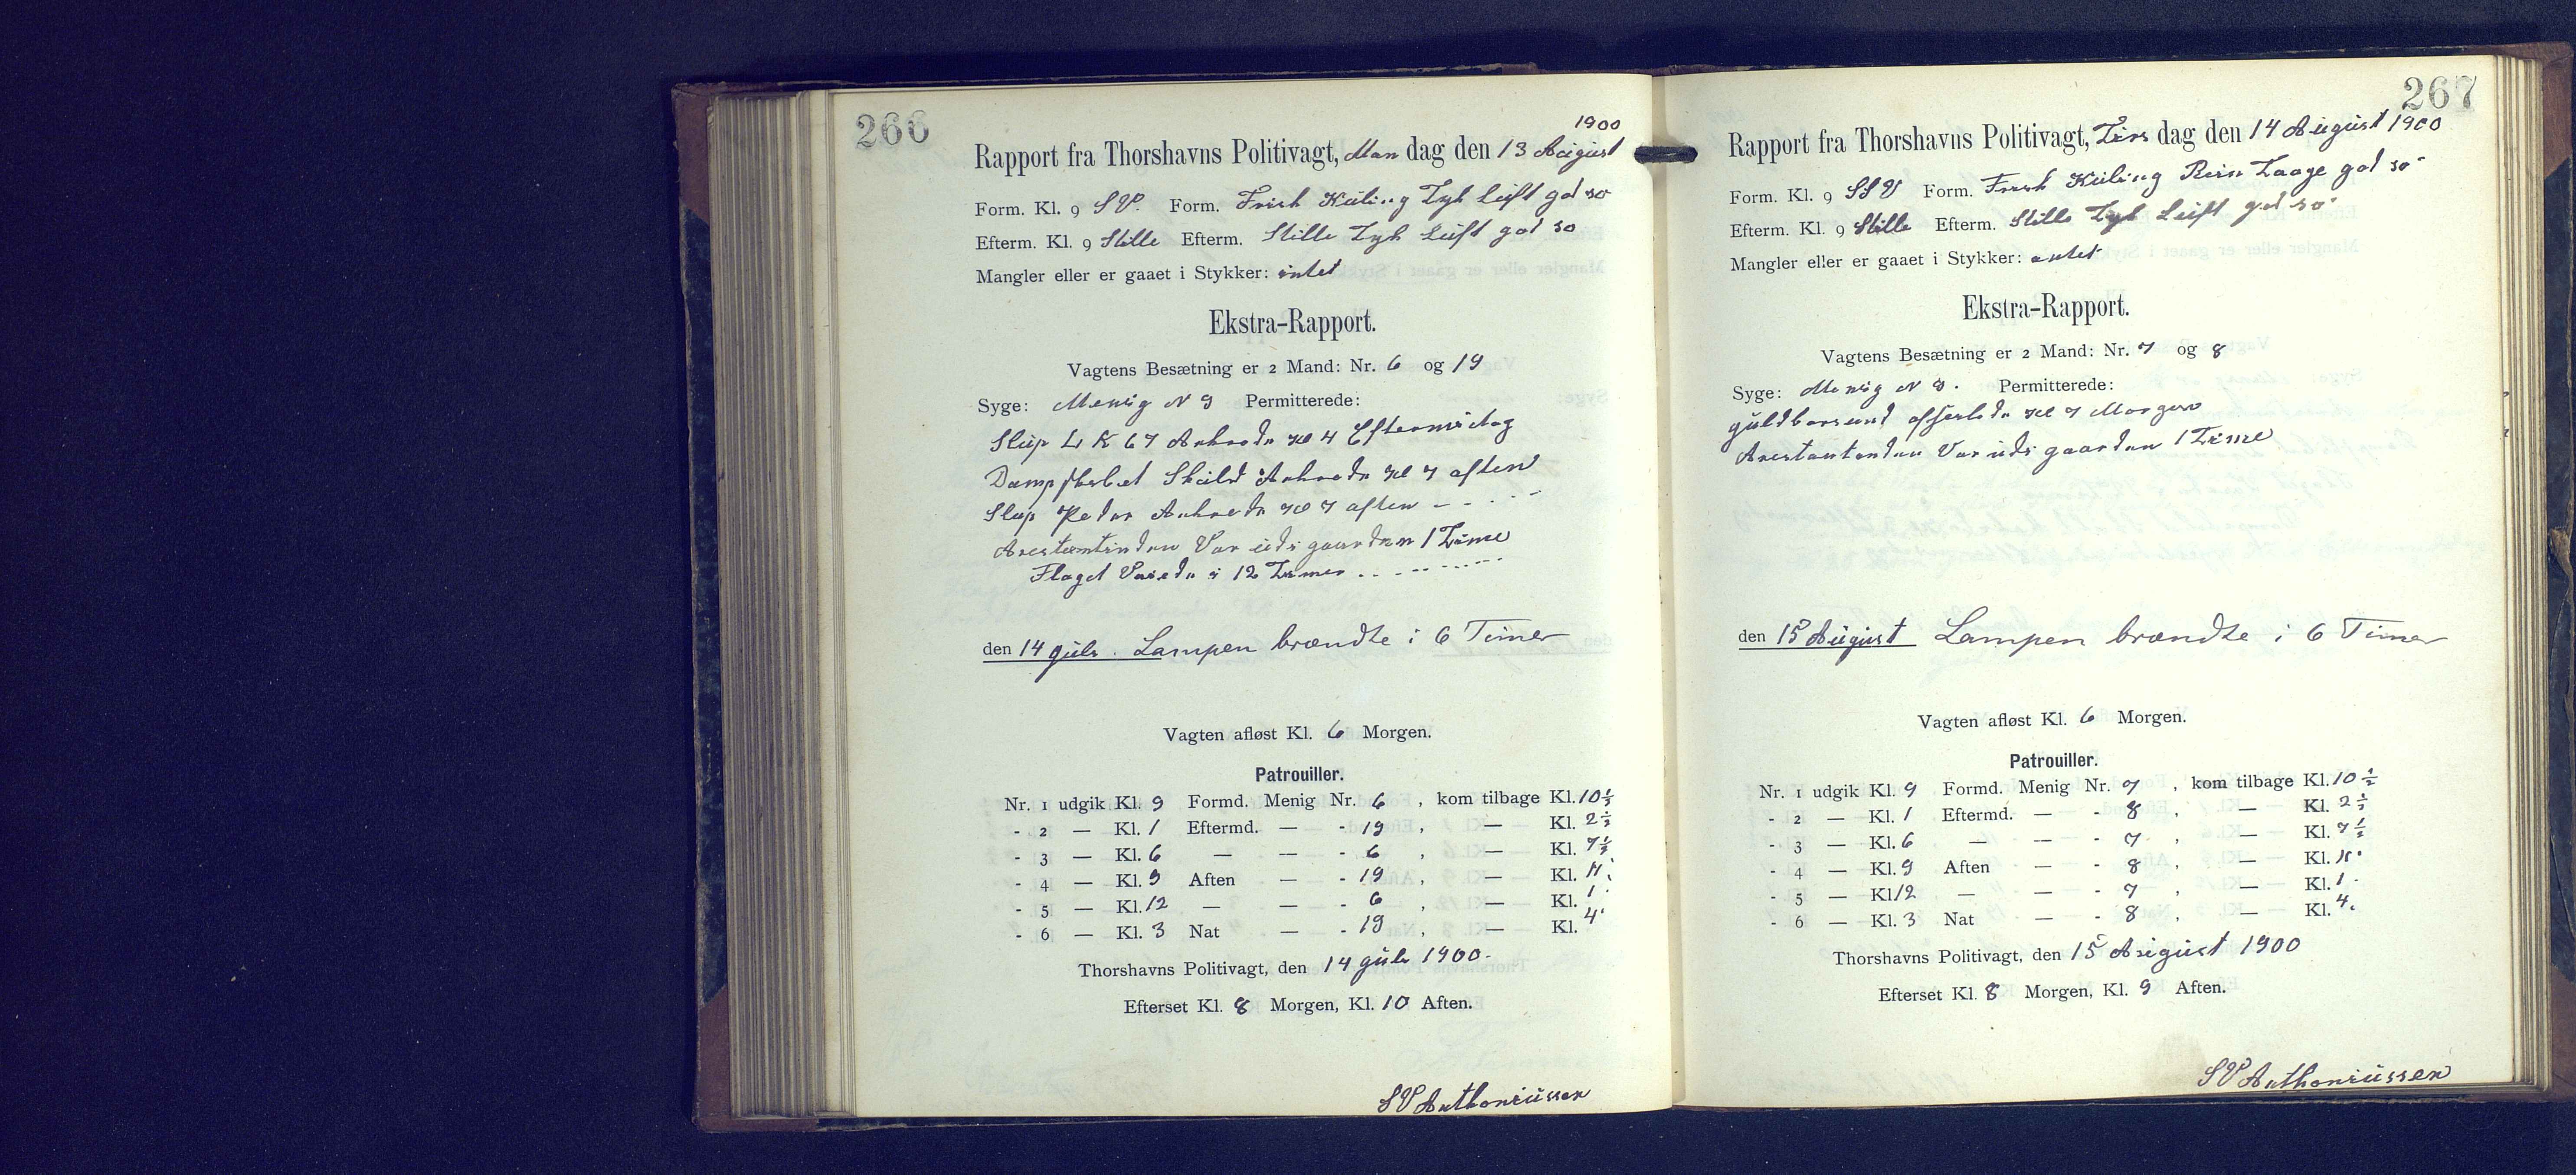 266
1900
Rapport fra Thorshavns Politivagt, Man dag den 13 August
Form. Kl. 9 SV. Form. Frisk Kuling Tyk Luft god sø
Efterm. Kl. 9 Stille Efterm. Stille Tyk Luft god sø
Mangler eller er gaaet i Stykker: intet
Ekstra-Rapport.
Vagtens Besætning er 2 Mand: Nr. 6 og 19
Syge: Menig N 9 Permitterede:
Slup L K 67 Ankrede Kl 4 Eftermidag
Dampskibet Skúld Ankrede Kl 7 aften
Slup Peder Ankrede Kl 7 aften
Arestantinden Var udi gaarden 1 Time
Flaget Vaiede i 12 Timer
den 14 guli. Lampen brændte i 6 Timer
Vagten afløst Kl. 6 Morgen.
Patrouiller.
Nr. 1 udgik Kl. 9 Formd. Menig Nr. 6 , kom tilbage Kl. 10 ½
- 2 — Kl. 1 Eftermd. — - 19 , — Kl. 2 ½
- 3 — Kl. 6 — — - 6 , — Kl. 7 ½
- 4 — Kl. 9 Aften — - 19 , — Kl. 11.
- 5 — Kl. 12 — — - 6 , — Kl. 1.
- 6 — Kl. 3 Nat — - 19 , — Kl. 4.
Thorshavns Politivagt, den 14 guli 1900.
Efterset Kl. 8 Morgen, Kl. 10 Aften.
SV Anthoniussen
267
Rapport fra Thorshavns Politivagt, Tirs dag den 14 August 1900
Form. Kl. 9 SSV Form. Frisk Kuling Rein Taage god sø
Efterm. Kl. 9 Stille Efterm. Stille Tyk Luft god sø
Mangler eller er gaaet i Stykker: intet
Ekstra-Rapport.
Vagtens Besætning er 2 Mand: Nr. 7 og 8
Syge: Menig N 9. Permitterede:
guldborsund afseilede Kl 7 Morgen
Arestantenden Var udi gaarden 1 Time
den 15 August Lampen brændte i 6 Timer
Vagten afløst Kl. 6 Morgen.
Patrouiller.
Nr. 1 udgik Kl. 9 Formd. Menig Nr. 7 , kom tilbage Kl. 10 ½
- 2 — Kl. 1 Eftermd. — - 8 , — Kl. 2 ½
- 3 — Kl. 6 — — - 7 , — Kl. 7 ½
- 4 — Kl. 9 Aften — - 8 , — Kl. 11.
- 5 — Kl. 12 — — - 7 , — Kl. 1.
- 6 — Kl. 3 Nat — - 8 , — Kl. 4.
Thorshavns Politivagt, den 15 August 1900
Efterset Kl. 8 Morgen, Kl. 9 Aften.
SV Anthoniussen